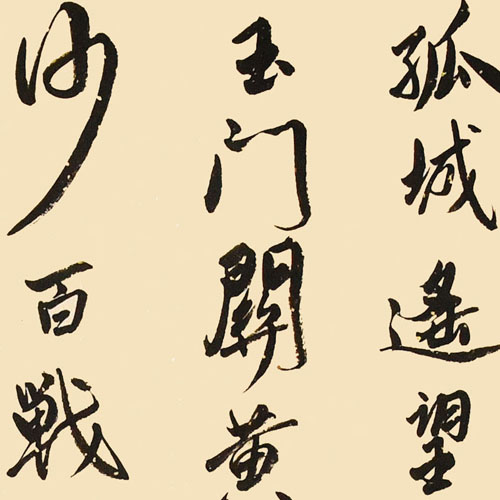 孤城遥望
玉门關黄
沙百戰